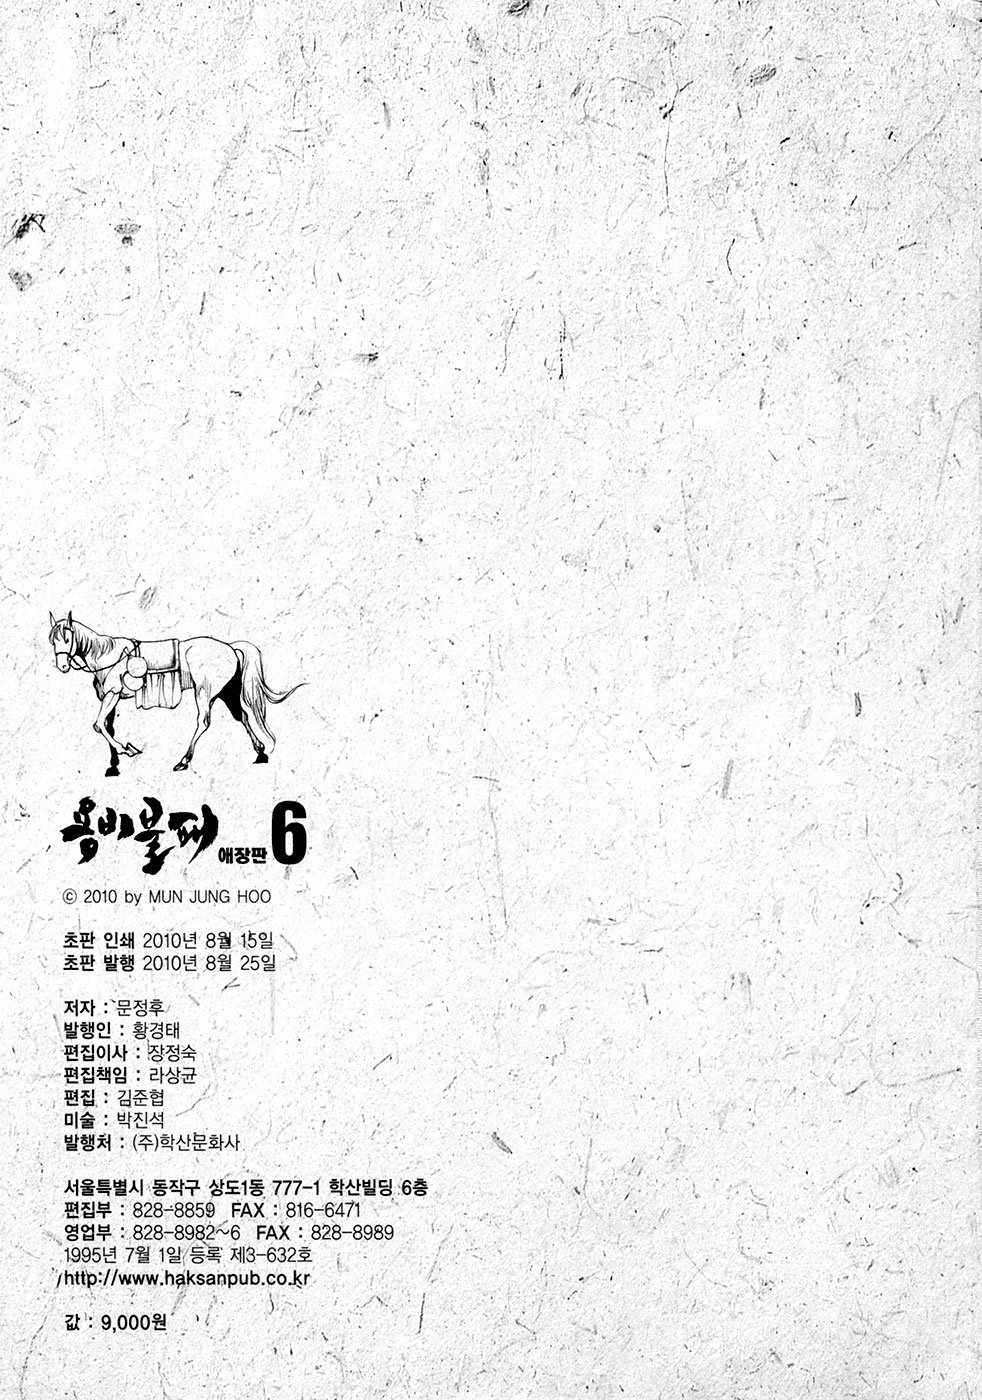 용비불패 애장판 6
ⓒ 2010 by MUN JUNG HOO
초판 인쇄 2010년 8월 15일
초판 발행 2010년 8월 25일
저자 : 문정후
발행인 : 황경태
편집이사 : 장정숙
편집책임 : 라상균
편집 : 김준협
미술 : 박진석
발행처 : (주)학산문화사
서울특별시 동작구 상도1동 777-1 학산빌딩 6층
편집부 : 828-8859 FAX : 816-6471
영업부 : 828-8982~6 FAX : 828-8989
1995년 7월 1일 등록 제3-632호
http://www.haksanpub.co.kr
값 : 9,000원